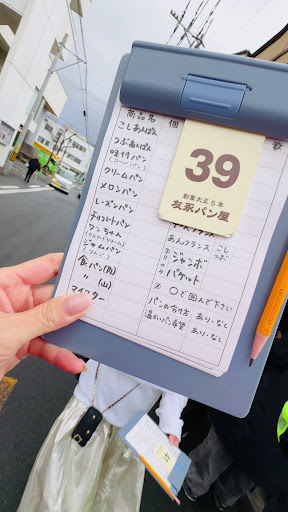 商品名 個 数
こしあんぱん
つぶあんぱん
味付パン
クリームパン
メロンパン
レーズンパン
チョコレートパン
ワンちゃん
ジャムパン
食パン(角)
〃 (山)
マイスター
39
創業大正5年
友永パン屋
あんフランス こし つぶ
ジャンボ
バケット
※ ○で囲んで下さい
パンの分け方 あり・なし
温かいパン希望 あり・なし